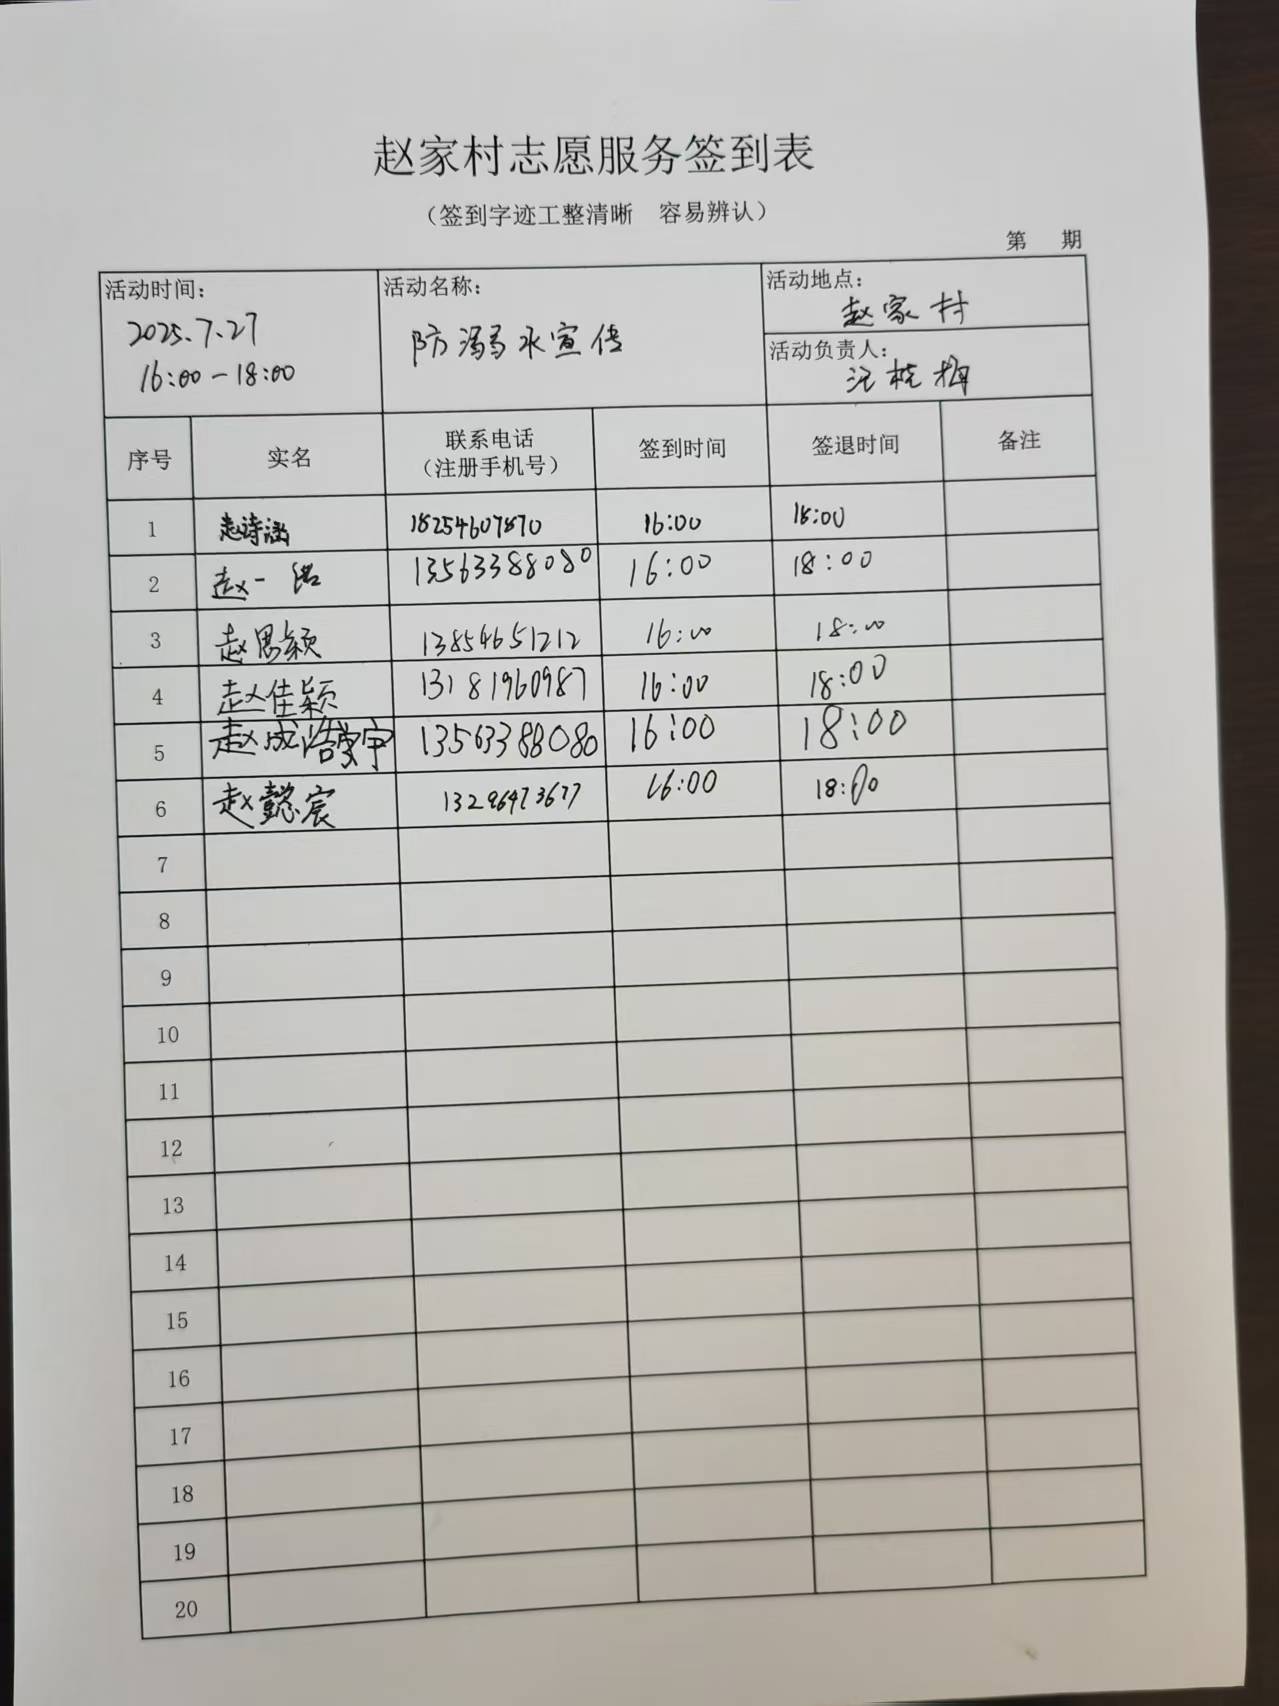 赵家村志愿服务签到表
（签到字迹工整清晰 容易辨认）
第 期
活动时间：
2025.7.27
16:00-18:00
活动名称：
防溺水宣传
活动地点：
赵家村
活动负责人：
汪桂梅
序号 实名 联系电话（注册手机号） 签到时间 签退时间 备注
1 赵诗涵 18254607870 16:00 18:00
2 赵一诺 13563388080 16:00 18:00
3 赵思颖 13854651212 16:00 18:00
4 赵佳颖 13181960987 16:00 18:00
5 赵成浩宇 13563388080 16:00 18:00
6 赵懿宸 16:00 18:00
7
8
9
10
11
12
13
14
15
16
17
18
19
20